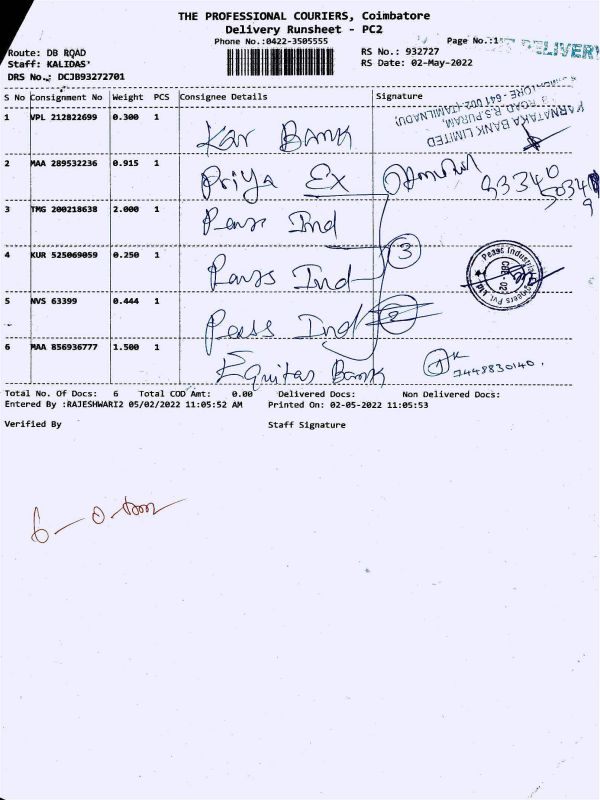 THE PROFESSIONAL COURIERS, Coimbatore
Delivery Runsheet - PC2
Phone No.:0422-3505555
Page No.:1
DELIVERY
Route: DB ROAD
Staff: KALIDAS
DRS No.: DCJB93272701
RS No.: 932727
RS Date: 02-May-2022
S No Consignment No Weight PCS Consignee Details Signature
1 VPL 212822699 0.300 1 Kar Bank
KARNATAKA BANK LIMITED
ROAD, R.S.PURAM,
641 002 (TAMILNADU)
2 MAA 289532236 0.915 1 Priya Ex
3 TMG 200218638 2.000 1 Pears Ind
3
4 KUR 525069059 0.250 1 Pears Ind
5 NVS 63399 0.444 1 Pears Ind
6 MAA 856936777 1.500 1 Equitas Bank
7448830140.
Total No. Of Docs: 6 Total COD Amt: 0.00 Delivered Docs: Non Delivered Docs:
Entered By :RAJESHWARI2 05/02/2022 11:05:52 AM Printed On: 02-05-2022 11:05:53
Verified By Staff Signature